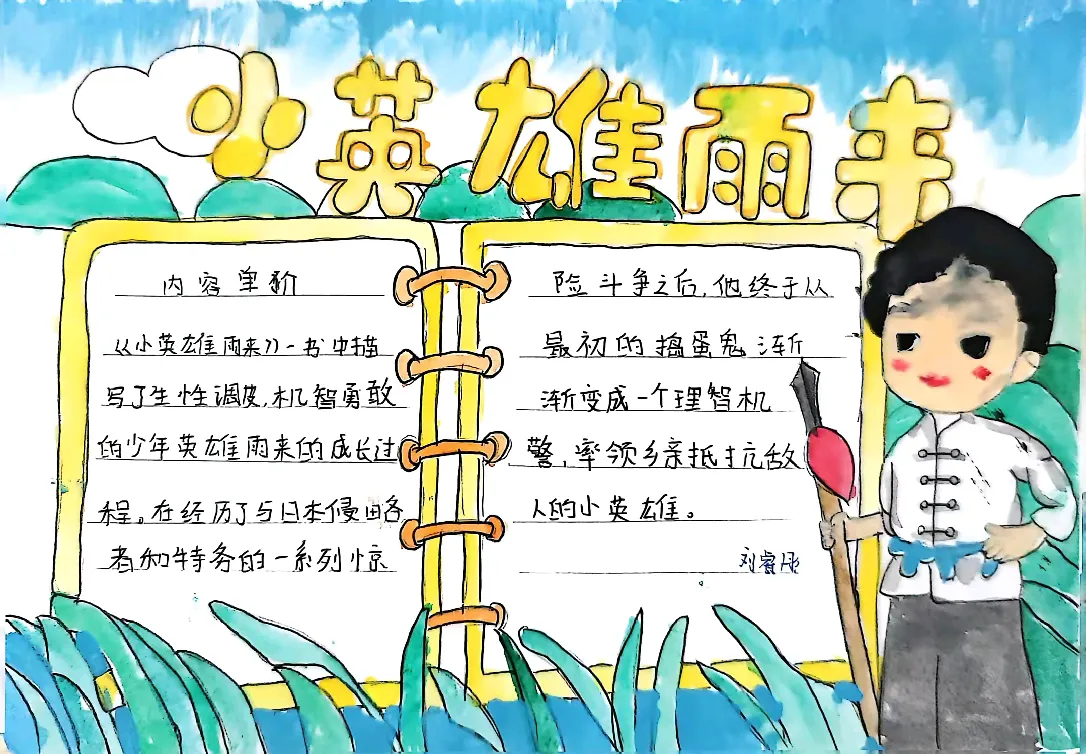 小英雄雨来
内容
《小英雄雨来》一书中描
写了生性调皮,机智勇敢
的少年英雄雨来的成长过
程。在经历了与日本侵略
者和特务的一系列惊
险斗争之后,他终于从
最初的捣蛋鬼渐
渐变成一个理智机
警,率领乡亲抵抗敌
人的小英雄。
刘睿